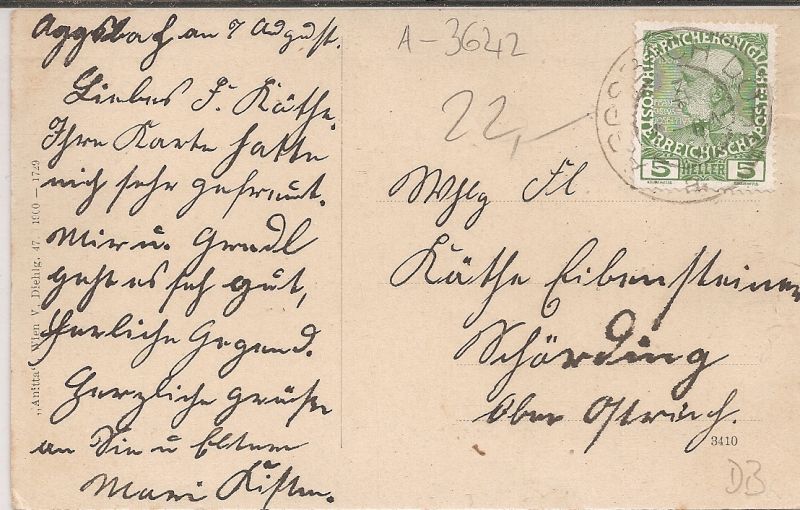 Aggsbach an 7 August.
Liebes F. Käthe,
Ihre Karte hatte
mich sehr gefreut.
Mir u. Gredl
geht es seh gut,
herliche Gegend.
Herzliche Grüße
an Sie u Eltern
Mari
A-3642
22,-
KAISERLICHE KÖNIGLICHE
ÖSTERREICHISCHE POST
5 HELLER 5
Whlg Fl
Käthe Eibensteiner
Schärding
Ober Östreich.
3410
DB
„Anitta“, Wien V., Diehlg. 47. 1900 — 1729